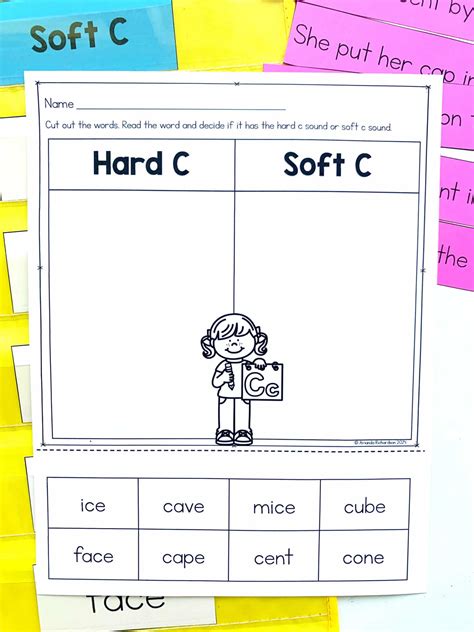 ent by
Soft C
She put her cap in
Name
Cut out the words. Read the word and decide if it has the hard c sound or soft c sound.
Hard C Soft C
the
Cc
© Amanda Richardson 2021
ice cave mice cube
face cape cent cone
face